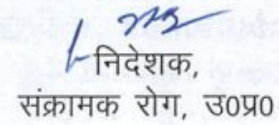 निदेशक,
संक्रामक रोग, उ0प्र0